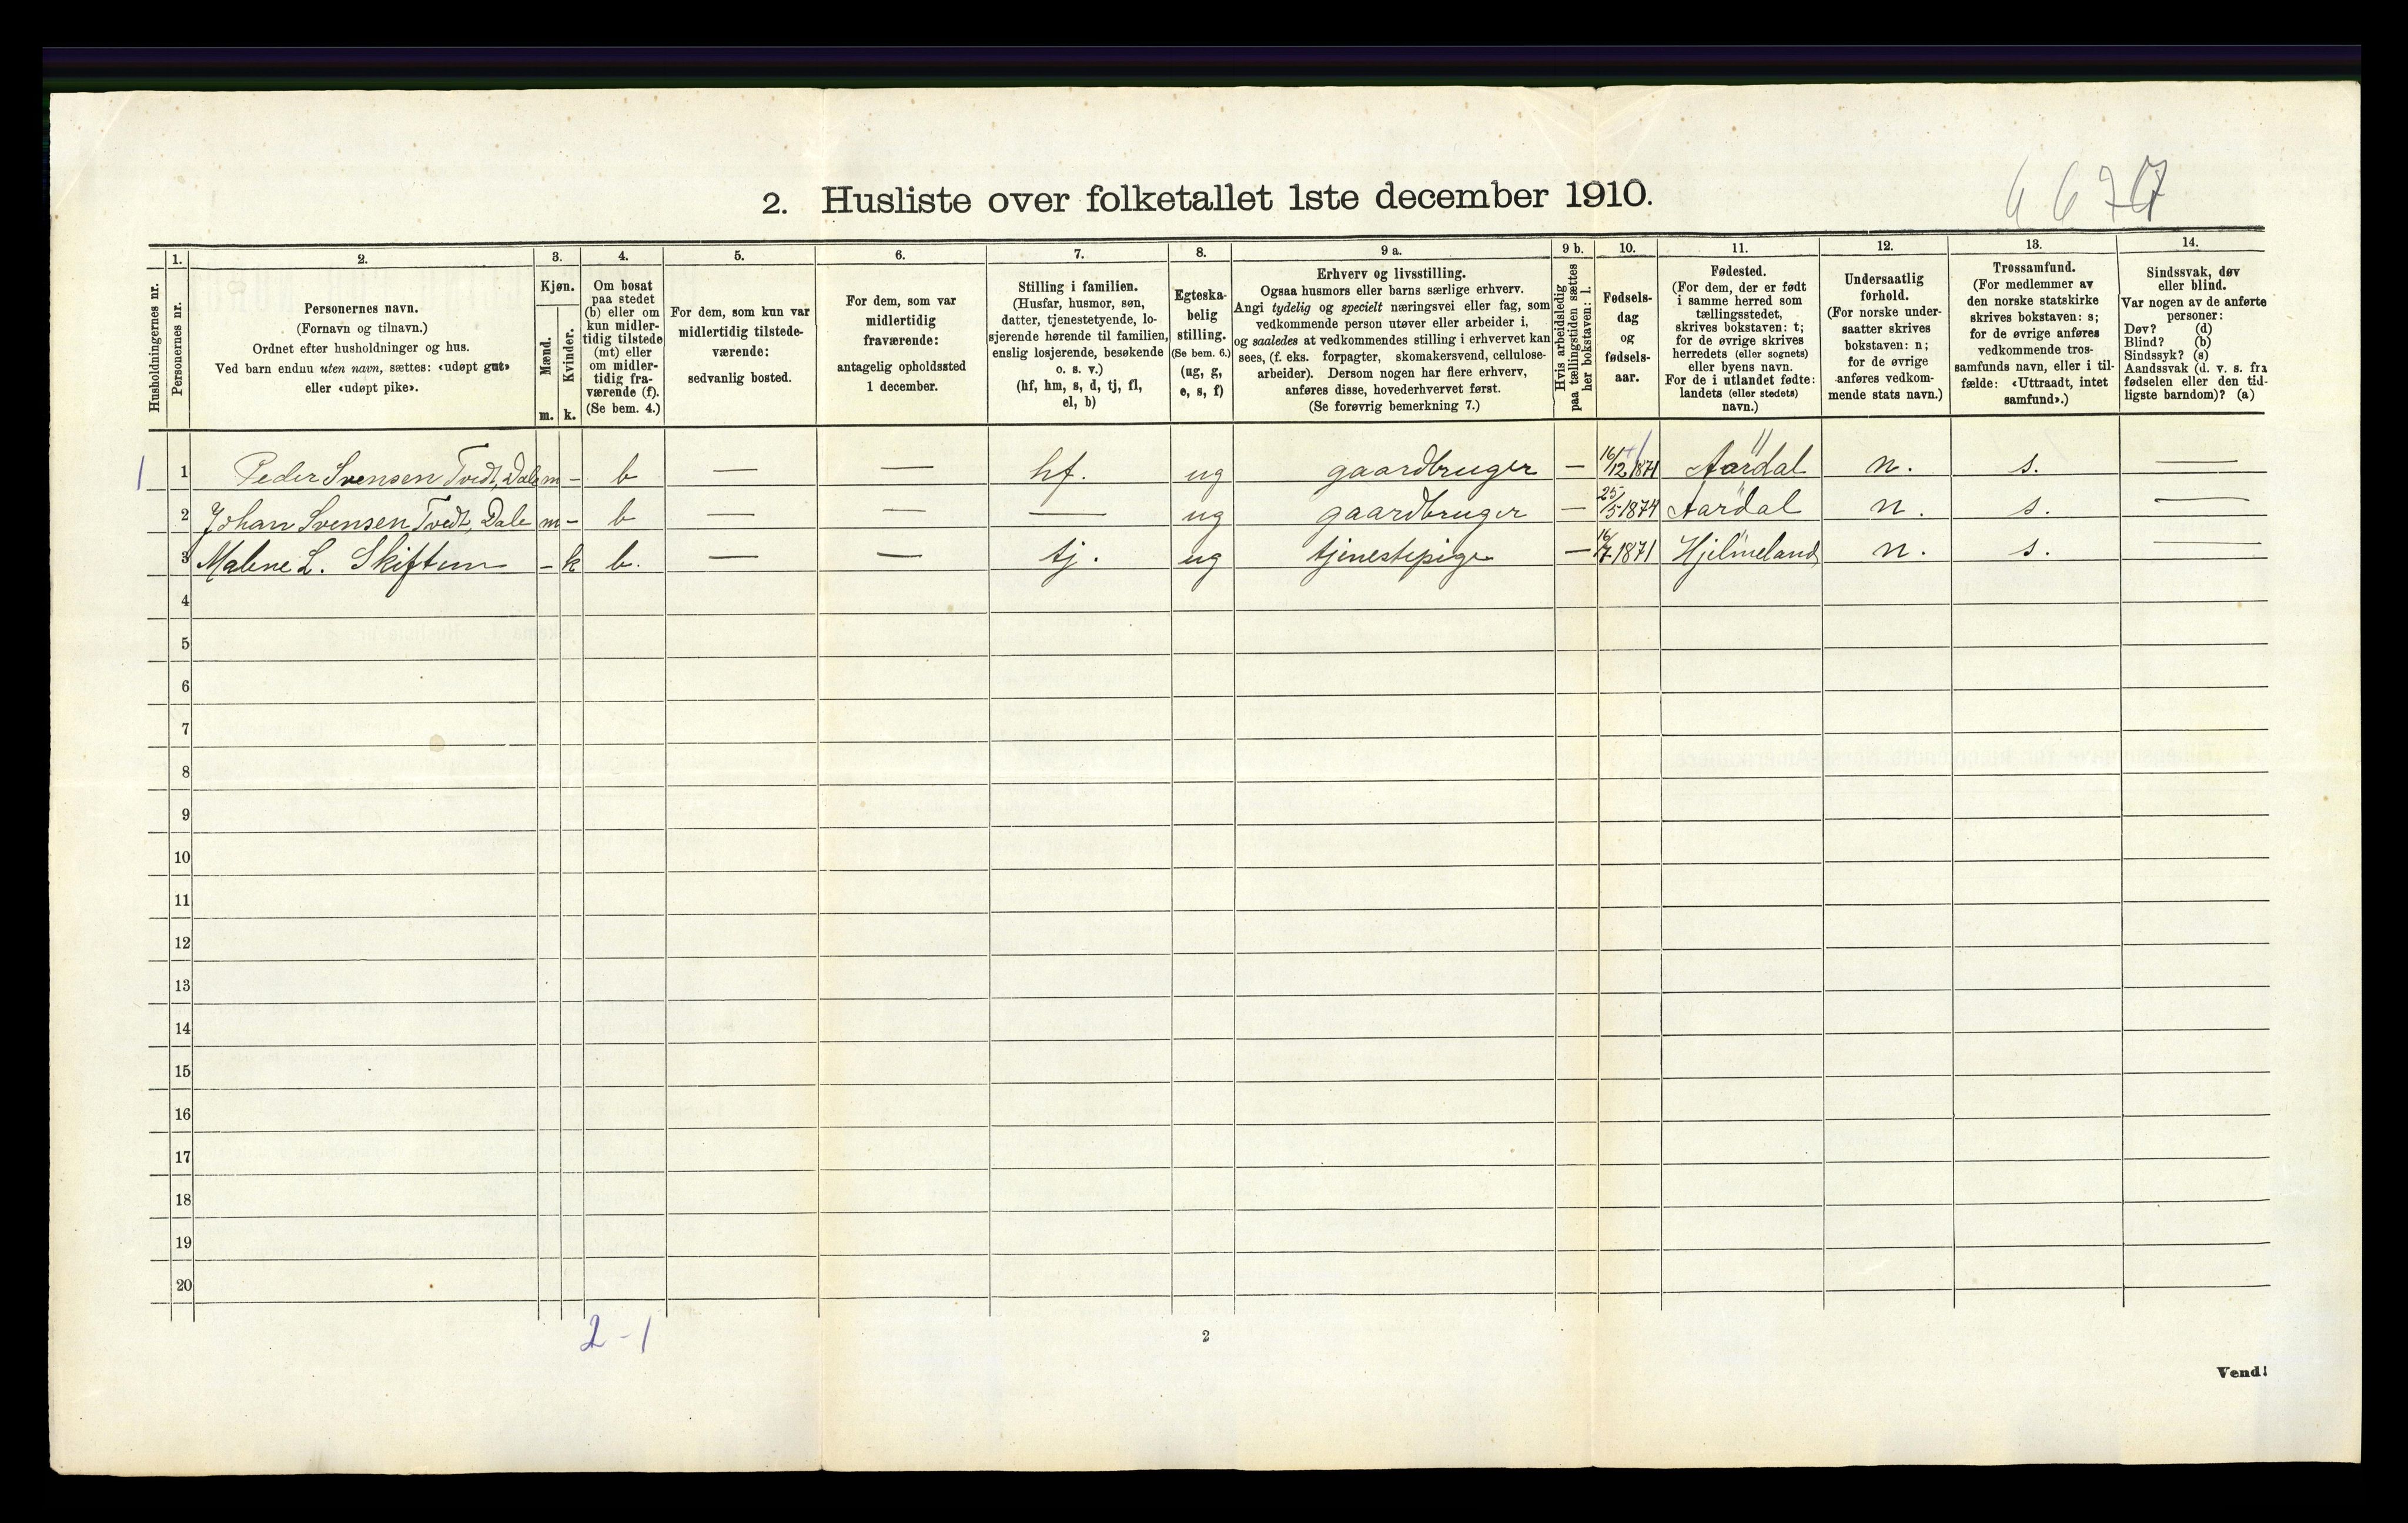 6677
2. Husliste over folketallet 1ste december 1910.
Husholdningernes nr.
1.
Personernes nr.
2.
Personernes navn.
(Fornavn og tilnavn.)
Ordnet efter husholdninger og hus.
Ved barn endnu uten navn, sættes: «udøpt gut»
eller «udøpt pike».
3.
Kjøn.
Mænd.
m.
Kvinder.
k.
4.
Om bosat
paa stedet
(b) eller om
kun midler-
tidig tilstede
(mt) eller
om midler-
tidig fra-
værende (f).
(Se bem. 4.)
5.
For dem, som kun var
midlertidig tilstede-
værende:
sedvanlig bosted.
6.
For dem, som var
midlertidig
fraværende:
antagelig opholdssted
1 december.
7.
Stilling i familien.
(Husfar, husmor, søn,
datter, tjenestetyende, lo-
sjerende hørende til familien,
enslig losjerende, besøkende
o. s. v.)
(hf, hm, s, d, tj, fl,
el, b)
8.
Egteska-
belig
stilling.
(Se bem. 6.)
(ug, g,
e, s, f)
9 a.
Erhverv og livsstilling.
Ogsaa husmors eller barns særlige erhverv.
Angi tydelig og specielt næringsvei eller fag, som
vedkommende person utøver eller arbeider i,
og saaledes at vedkommendes stilling i erhvervet kan
sees, (f. eks. forpagter, skomakersvend, cellulose-
arbeider). Dersom nogen har flere erhverv,
anføres disse, hovederhvervet først.
(Se forøvrig bemerkning 7.)
9 b.
Hvis arbeidsledig
paa tællingstiden sættes
her bokstaven: l.
10.
Fødsels-
dag
og
fødsels-
aar.
11.
Fødested.
(For dem, der er født
i samme herred som
tællingsstedet,
skrives bokstaven: t;
for de øvrige skrives
herredets (eller sognets)
eller byens navn.
For de i utlandet fødte:
landets (eller stedets)
navn.)
12.
Undersaatlig
forhold.
(For norske under-
saatter skrives
bokstaven: n;
for de øvrige
anføres vedkom-
mende stats navn.)
13.
Trossamfund.
(For medlemmer av
den norske statskirke
skrives bokstaven: s;
for de øvrige anføres
vedkommende tros-
samfunds navn, eller i til-
fælde: «Uttraadt, intet
samfund».)
14.
Sindssvak, døv
eller blind.
Var nogen av de anførte
personer:
Døv? (d)
Blind? (b)
Sindssyk? (s)
Aandssvak (d. v. s. fra
fødselen eller den tid-
ligste barndom)? (a)
1 1 Peder Svensen Tvedt, Dale m - b — — hf. ug gaardbruger — 16/12 1871 Aardal n. s. —
2 Johan Svensen Tvedt, Dale m - b — — — ug gaardbruger — 25/5 1874 Aardal n. s. —
3 Malene L. Skiftun - k b. — — tj. ug tjenestepige — 16/7 1871 Hjelmeland n. s. —
4
5
6
7
8
9
10
11
12
13
14
15
16
17
18
19
20
2 - 1
2
Vend!